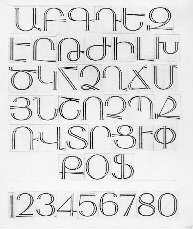 ԱԲԳԴԵԶ
ԷԸԹԺԻԼԽ
ԾԿՀՁՂՃՄ
ՅՆՇՈՉՊՋ
ՌՍՎՏՐՑՒՓ
ՔՕՖ
123456780